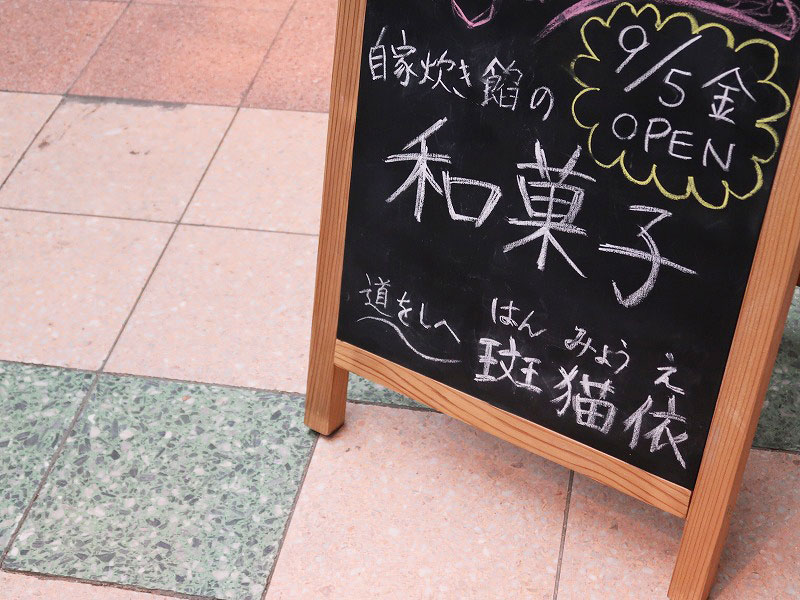 自家炊き餡の
9/5 金
OPEN
和菓子
道をしへ
はん みょう え
斑猫依